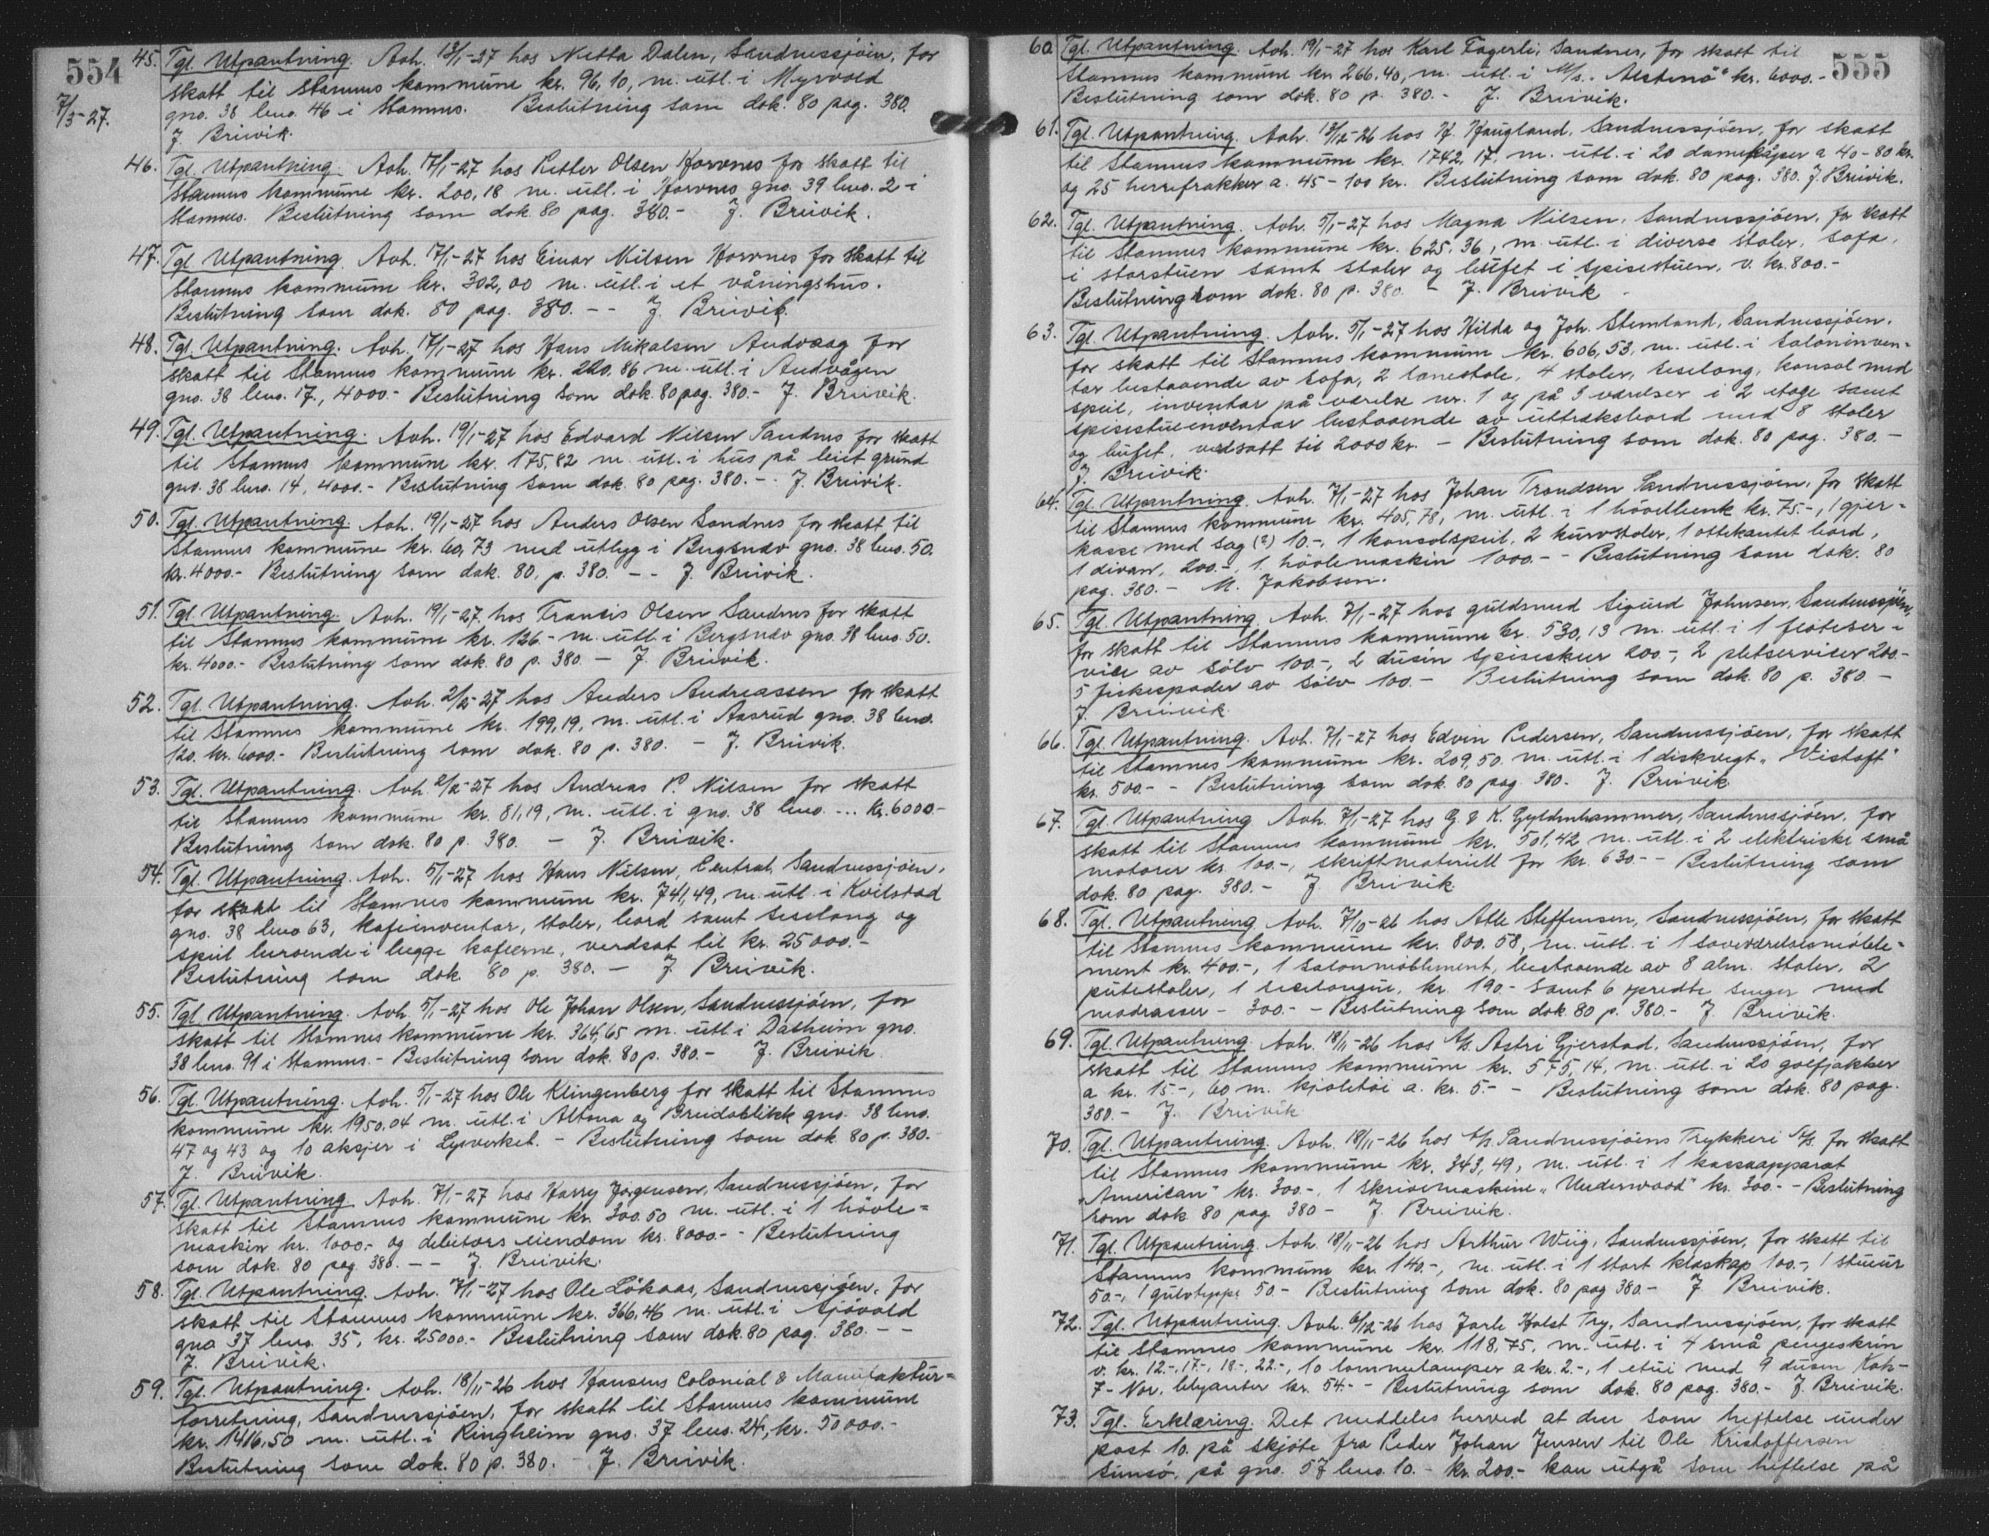 554
7/3-27.
45. Tgl. Utpantning. Avh. 13/1-27 hos Netta Dalen, Sandnessjöen, for
skatt til Stamnes kommune kr. 96,10, m. utl. i Myrvold
gno. 38 bno. 46 i Stamnes. Beslutning som dok. 80 pag. 380.
J. Breivik.
46. Tgl. Utpantning. Avh. 17/1-27 hos Petter Olsen Horvnes for skatt til
Stamnes kommune kr. 200,18 m. utl. i Horvnes gno. 39 bno. 2 i
Stamnes. Beslutning som dok. 80 pag. 380.- J. Breivik.
47. Tgl. Utpantning. Avh. 17/1-27 hos Einar Nilsen Horvnes for skatt til
Stamnes kommune kr. 302,00 m. utl. i et våningshus.
Beslutning som dok. 80 pag. 380. - - J. Breivik.
48. Tgl. Utpantning. Avh. 17/1-27 hos Hans Mikalsen Andvaag for
skatt til Stamnes kommune kr. 220.86 m. utl. i Andvågen
gno. 38 bno. 17., 4000.- Beslutning som dok. 80 pag. 380.- J. Breivik.
49. Tgl. Utpantning. Avh. 19/1-27 hos Edvard Nilsen Sandnes for skatt
til Stamnes kommune kr. 175,82 m. utl. i hus på leiet grund
gno. 38 bno. 14, 4000.- Beslutning som dok. 80 pag. 380. - . J. Breivik.
50. Tgl. Utpantning. Avh. 19/1-27 hos Anders Olsen Sandnes for skatt til
Stamnes kommune kr. 60,73 med utlegg i Bergsnev gno. 38 bno. 50.
kr. 4000.- Beslutning som dok. 80. p. 380. - - J. Breivik.
51. Tgl. Utpantning. Avh. 19/1-27 hos Francis Olsen Sandnes for skatt
til Stamnes kommune kr. 126- m. utl. i Bergsnev gno. 38 bno. 50.
kr. 4000.- Beslutning som dok. 80 p. 380. - J. Breivik.
52. Tgl. Utpantning. Avh. 2/2-27 hos Anders Andreassen for skatt
til Stamnes kommune kr. 199,19, m. utl. i Aasrud gno. 38 bno.
120. kr. 6000.- Beslutning som dok. 80 p. 380. - J. Breivik.
53. Tgl. Utpantning. Avh. 2/2-27 hos Andreas P. Nilsen for skatt
til Stamnes kommune kr. 81,19, m. utl. i gno. 38 bno. ... kr. 6000-
Beslutning som dok. 80 p. 380. - J. Breivik.
54. Tgl. Utpantning. Avh. 5/1-27 hos Hans Nilsen, Central, Sandnessjöen,
for skatt til Stamnes kommune kr. 741,49, m. utl. i Kvilstad
gno. 38 bno 63, kafeinventar, stoler, bord samt seselong og
speil beroende i begge kafeerne, verdsat til kr. 25000.-
Beslutning som dok. 80 p. 380. - J. Breivik.
55. Tgl. Utpantning. Avh. 5/1-27 hos Ole Johan Olsen, Sandnessjöen, for
skatt til Stamnes kommune kr. 364,65 m. utl. i Dasheim gno.
38 bno. 91 i Stamnes.- Beslutning som dok. 80 p. 380.- J. Breivik
56. Tgl. Utpantning. Avh. 5/1-27 hos Ole Klingenberg for skatt til Stamnes
kommune kr. 1950.04 m. utl. i Altona og Breidablikk gno. 38 bno.
47 og 43 og 10 aksjer i Lysverket. - Beslutning som dok. 80 p. 380.-
J. Breivik.
57. Tgl. Utpantning. Avh. 7/1-27 hos Harry Jørgensen, Sandnessjöen, for
skatt til Stamnes kommune kr. 300.50 m. utl. i 1 hövle-
maskin kr. 1000.- og debitors eiendom kr. 8000.- - Beslutning
som dok. 80 pag. 380. - - J. Breivik.
58. Tgl. Utpantning. Avh. 7/1-27 hos Ole Lökaas, Sandnessjöen, for
skatt til Stamnes kommune kr. 366,46 m. utl. i Sjövold
gno 37 bno. 35, kr. 25000.- Beslutning som dok. 80 pag. 380. - -
J. Breivik.
59. Tgl. Utpantning. Avh. 18/11-26 hos Hansens Colonial & Manufaktur-
forretning, Sandnessjöen, for skatt til Stamnes kommune
kr. 1416.50 m. utl. i Ringheim gno. 37 bno. 24, kr. 50000.-
Beslutning som dok. 80 p. 380. - J. Breivik.
555
60. Tgl. Utpantning. Avh. 19/1-27 hos Karl Fagerli, Sandnes, for skatt til
Stamnes kommune kr. 266.40, m. utl. i M/S. "Alstenö" kr. 6000.-
Beslutning som dok. 80 p. 380.- J. Breivik.
61. Tgl. Utpantning. Avh. 13/12-26 hos H. Haugland, Sandnessjöen, for skatt
til Stamnes kommune kr. 1742,17. m. utl. i 20 damekåper a 40-80 kr.
og 25 herrefrakker a. 45-100 kr. Beslutning som dok. 80 pag. 380. J. Breivik.
62. Tgl. Utpantning. Avh. 5/1-27 hos Magna Nilsen, Sandnessjöen, for skatt
til Stamnes kommune kr. 625,36, m. utl. i diverse stoler, sofa,
i storstuen samt stoler og buffet i spisestuen, v. kr. 800.-
Beslutning som dok. 80 p. 380. - J. Breivik
63. Tgl. Utpantning. Avh. 5/1-27 hos Hilda og Joh. Stemland, Sandnessjöen.
for skatt til Stamnes kommune kr. 606,53, m. utl. i saloninven-
tar bestaaende av sofa, 2 lænestole, 4 stoler, seselong, konsol med
speil, inventar på værelse nr. 1 og på 3 værelser i 2 etage samt
spisestueinventar bestaaende av uttræksbord med 8 stoler
og bufet, verdsatt til 2000 kr. - Beslutning som dok. 80 pag. 380. -
J. Breivik.
64. Tgl. Utpantning. Avh. 7/1-27 hos Johan Trondsen Sandnessjöen, for skatt
til Stamnes kommune kr. 405,78, m. utl. i 1 hövelbenk kr. 75.-, 1 gjer-
kasse med sag (?) 10.-, 1 konsolspeil, 2 kurvstoler, 1 ottekantet bord,
1 divan, 200.-, 1 hövlemaskin 1000.- - Beslutning som dok. 80
pag. 380.- M. Jakobsen.
65. Tgl. Utpantning. Avh. 7/1-27 hos guldsmed Sigurd Johnsen, Sandnessjöen,
for skatt til Stamnes kommune kr. 530,13 m. utl. i 1 fløteser-
vise av sølv 100.-, 2 dusin spiseskeer 200.-, 2 pletserviser 200.-
5 fiskespader av sølv 100.- Beslutning som dok. 80 p. 380.-
J. Breivik
66. Tgl. Utpantning. Avh. 7/1-27 hos Edvin Pedersen, Sandnessjöen, for skatt
til Stamnes kommune kr. 209,50. m. utl. i 1 diskvegt "Vistoft"
kr. 500.- - Beslutning som dok. 80 pag. 380. J. Breivik
67. Tgl. Utpantning Avh. 7/1-27 hos G & K. Gyldenhammer, Sandnessjöen, for
skatt til Stamnes kommune kr. 501,42 m. utl. i 2 elektriske små
motorer kr. 100.-, skriftmateriell for kr. 630.- - Beslutning som
dok. 80 pag. 380.- J. Breivik
68. Tgl. Utpantning. Avh. 7/10-26 hos Atle Steffensen, Sandnessjöen, for skatt
til Stamnes kommune kr. 800.58, m. utl. i 1 soveværelsesmöble-
ment kr. 400.-, 1 salonmöblement, bestaaende av 8 alm. stoler, 2
putestoler, 1 seselongue, kr. 190.- samt 6 spredte senger med
madrasser - 300.- - Beslutning som dok. 80 p. 380.- J. Breivik.
69. Tgl. Utpantning. Avh. 18/11-26 hos A/S Astri Gjerstad, Sandnessjöen, for
skatt til Stamnes kommune kr. 575,14, m. utl. i 20 golfjakker
a kr. 15.-, 60 m. kjoletöi a. kr. 5.- - Beslutning som dok. 80 pag.
380.- J. Breivik
70. Tgl. Utpantning. Avh. 18/11-26 hos A/S Sandnessjöens Trykkeri A/S. for skatt
til Stamnes kommune kr. 343,49, m. utl. i 1 kassaapparat
"American" kr. 300.-, 1 skrivemaskine "Underwood" kr. 300.- - Beslutning
som dok. 80 pag. 380 - J. Breivik.
71. Tgl. Utpantning. Avh. 18/11-26 hos Arthur Wiig, Sandnessjöen, for skatt til
Stamnes kommune kr. 140.-, m. utl. i 1 stort klæskap 100.-, 1 stueur
50.-, 1 gulvteppe 50 - Beslutning som dok. 80 pag 380.- J. Breivik.
72. Tgl. Utpantning. Avh. 6/12-26 hos Jarle Holst Try, Sandnessjöen, for skatt
til Stamnes kommune kr. 118,75, m. utl. i 4 små pengeskrin
v. kr. 12.-, 17.-, 18.-, 22.-, 10 lommelamper a kr. 2.-, 1 etui med 9 dusin Koh-
I-Nor. blyanter kr. 54.- - Beslutning som dok. 80 pag. 380.- J. Breivik.
73. Tgl. Erklæring. Det meddeles herved at den som heftelse under
post 10. på skjöte fra Peder Johan Jensen til Ole Kristoffersen
Simsö, på gno. 57 bno. 10.- kr. 200.- kan utgå som heftelse på